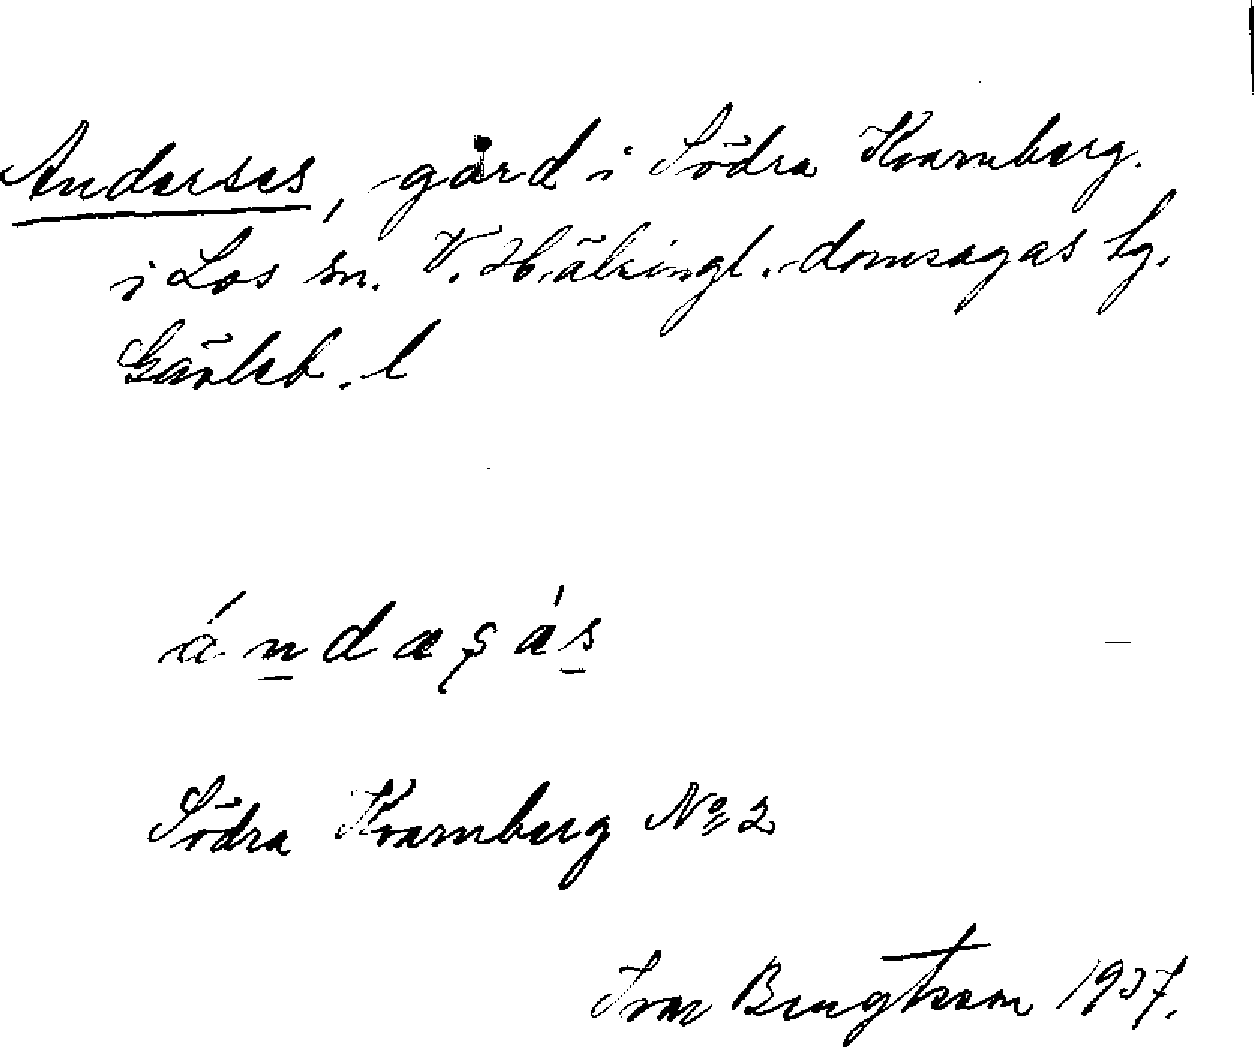 Anderses, gård i Södra Kvarnberg.
i Los sn. V. Hälsingl. domsagas tg.
Gävleb. l
ándaşás
Södra Kvarnberg No 2
Ivar Bengtsson 1937.